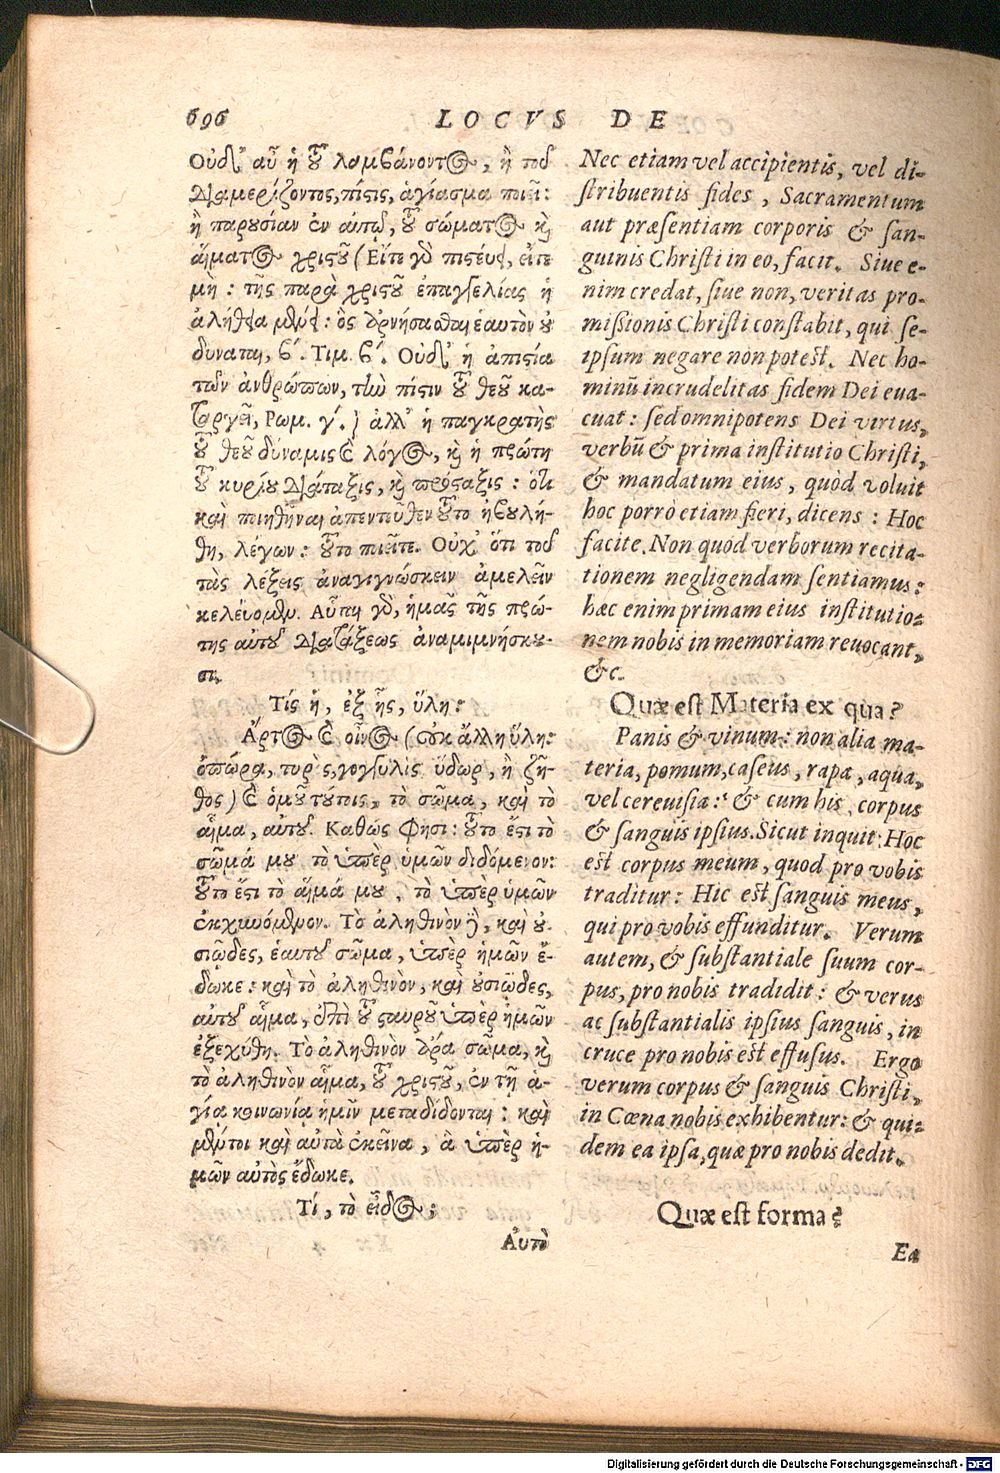 696
LOCVS DE
Οὐδ' αὖ ἡ τοῦ λαμβάνοντος, ἢ τοῦ
διαμερίζοντος, πίστις, ἁγίασμα ποιεῖ:
ἢ παρουσίαν ἐν αὐτῷ, τοῦ σώματος καὶ
αἵματος χριστοῦ (Εἴτε γὰρ πιστεύει, εἴτε
μὴ: τῆς παρὰ χριστοῦ ἐπαγγελίας ἡ
ἀλήθεια μένει: ὃς ἀρνήσασθαι ἑαυτὸν οὐ
δύναται, β. Τιμ. β. Οὐδ' ἡ ἀπιστία
τῶν ἀνθρώπων, τὴν πίστιν τοῦ θεοῦ κα-
ταργεῖ, Ρωμ. γ.) ἀλλ' ἡ παγκρατὴς
τοῦ θεοῦ δύναμις καὶ λόγος, καὶ ἡ πρώτη
τοῦ κυρίου διάταξις, καὶ πρόσταξις: ὅτι
καὶ ποιηθῆναι ἀπεντεῦθεν τοῦτο ἠβουλή-
θη, λέγων: τοῦτο ποιεῖτε. Οὐχ' ὅτι τοῦ
τὰς λέξεις ἀναγιγνώσκειν ἀμελεῖν
κελεύομεν. Αὗται γὰρ, ἡμᾶς τῆς πρώ-
της αὐτοῦ διατάξεως ἀναμιμνήσκου-
σι.
Τίς ἡ, ἐξ ἧς, ὕλη;
Ἄρτος καὶ οἶνος (οὐκ ἄλλη ὕλη:
ὀπώρα, τυρὸς, γογγυλὶς ὕδωρ, ἢ ζῆ-
θος) καὶ ὁμοῦ τούτοις, τὸ σῶμα, καὶ τὸ
αἷμα, αὐτοῦ. Καθώς φησι: τοῦτο ἔστι τὸ
σῶμά μου τὸ ὑπὲρ ὑμῶν διδόμενον:
τοῦτο ἔστι τὸ αἷμά μου, τὸ ὑπὲρ ὑμῶν
ἐκχυνόμενον. Τὸ ἀληθινὸν δὲ, καὶ οὐ-
σιῶδες, ἑαυτοῦ σῶμα, ὑπὲρ ἡμῶν ἔ-
δωκε: καὶ τὸ ἀληθινὸν, καὶ οὐσιῶδες,
αὐτοῦ αἷμα, ἐπὶ τοῦ σταυροῦ ὑπὲρ ἡμῶν
ἐξεχύθη. Τὸ ἀληθινὸν ἄρα σῶμα, καὶ
τὸ ἀληθινὸν αἷμα, τοῦ χριστοῦ, ἐν τῇ ἁ-
γίᾳ κοινωνίᾳ ἡμῖν μεταδίδονται: καὶ
μέντοι καὶ αὐτὰ ἐκεῖνα, ἃ ὑπὲρ ἡ-
μῶν αὐτὸς ἔδωκε.
Τί, τὸ εἶδος;
Αὐτὸ
Nec etiam vel accipientis, vel di-
stribuentis fides, Sacramentum
aut præsentiam corporis & san-
guinis Christi in eo, facit. Siue e-
nim credat, siue non, veritas pro-
missionis Christi constabit, qui se-
ipsum negare non potest. Nec ho-
minũ incrudelitas fidem Dei eua-
cuat: sed omnipotens Dei virtus,
verbũ & prima institutio Christi,
& mandatum eius, quòd voluit
hoc porrò etiam fieri, dicens: Hoc
facite. Non quòd verborum recita-
tionem negligendam sentiamus:
hæc enim primam eius institutio-
nem nobis in memoriam reuocant,
&c.
Quæ est Materia ex qua?
Panis & vinum: non alia ma-
teria, pomum, caseus, rapa, aqua,
vel cereuisia: & cum his, corpus
& sanguis ipsius. Sicut inquit: Hoc
est corpus meum, quod pro vobis
traditur: Hic est sanguis meus,
qui pro vobis effunditur. Verum
autem, & substantiale suum cor-
pus, pro nobis tradidit: & verus
ac substantialis ipsius sanguis, in
cruce pro nobis est effusus. Ergo
verum corpus & sanguis Christi,
in Cœna nobis exhibentur: & qui-
dem ea ipsa, quæ pro nobis dedit.
Quæ est forma?
Ea
Digitalisierung gefördert durch die Deutsche Forschungsgemeinschaft - DFG